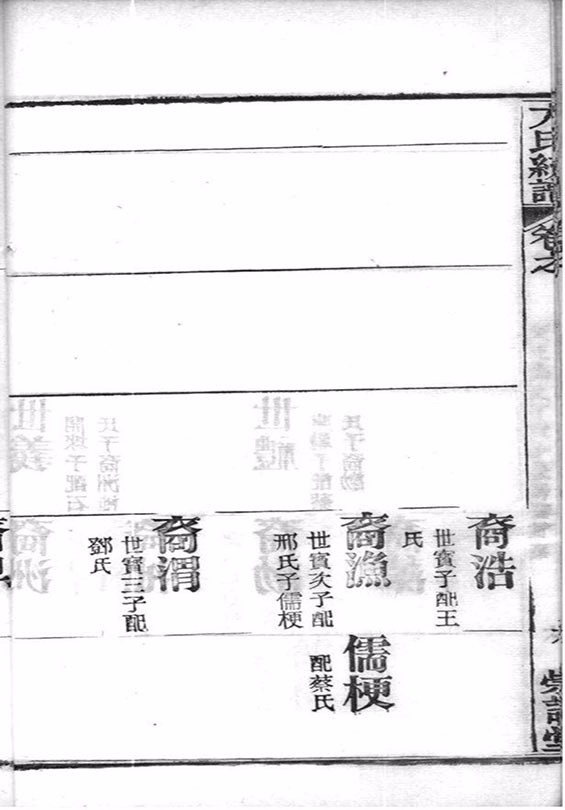 氏統譜
卷之
裔浩
世賓子配王
氏
裔漁
世賓次子配
邢氏子儒梗
儒梗
配蔡氏
裔渭
世賓三子配
鄧氏